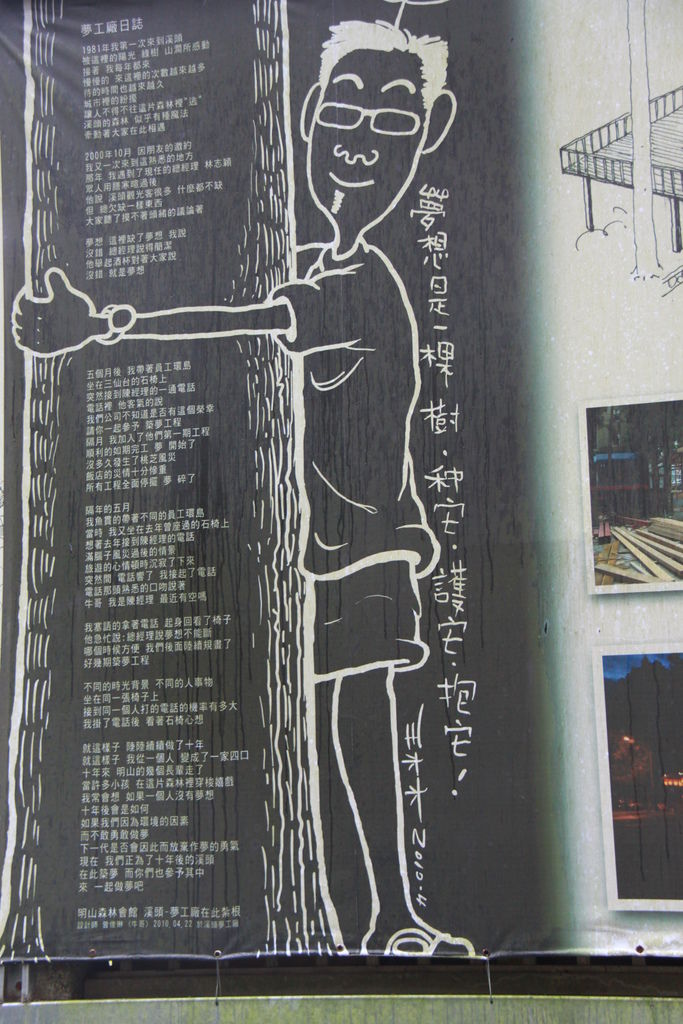 夢工廠日誌
1981年我第一次來到溪頭
被這裡的陽光 綠樹 山澗所感動
接著 我每年都來
慢慢的 來這裡的次數越來越多
待的時間也越來越久
城市裡的紛擾
讓人不得不往這片森林裡"逃"
溪頭的森林 似乎有種魔法
牽動著大家在此相遇
2000年10月 因朋友的邀約
我又一次來到這熟悉的地方
那年 我遇到了現在的總經理 林志穎
眾人用膳寒暄過後
他說 溪頭觀光客很多 什麼都不缺
但 總欠缺一樣東西
大家聽了摸不著頭緒的議論著
夢想 這裡缺了夢想 我說
沒錯 總經理說得簡潔
他舉起酒杯對著大家說
沒錯 就是夢想
五個月後 我帶著員工環島
坐在三仙台的石椅上
突然接到陳經理的一通電話
電話裡 他客氣的說
我們公司不知道是否有這個榮幸
請你一起參予 築夢工程
隔月 我加入了他們第一期工程
順利的如期完工 夢 開始了
沒多久發生了桃芝風災
飯店的災情十分慘重
所有工程全面停擺 夢 碎了
隔年的五月
我魚貫的帶著不同的員工環島
當時 我又坐在去年曾座過的石椅上
想著去年接到陳經理的電話
滿腦子風災過後的情景
旅遊的心情頓時沉寂了下來
突然間 電話響了 我接起了電話
電話那頭熟悉的口吻說著
牛哥 我是陳經理 最近有空嗎
我塞語的拿著電話 起身回看了椅子
他急忙說:總經理說夢想不能斷
哪個時候方便 我們後面陸續規畫了
好幾期築夢工程
不同的時光背景 不同的人事物
坐在同一張椅子上
接到同一個人打的電話的機率有多大
我掛了電話後 看著石椅心想
就這樣子 陸陸續續做了十年
就這樣子 我從一個人 變成了一家四口
十年來 明山的幾個長輩走了
當許多小孩 在這片森林裡穿梭嬉戲
我常會想 如果一個人沒有夢想
十年後會是如何
如果我們因為環境的因素
而不敢勇敢做夢
下一代是否會因此而放棄作夢的勇氣
現在 我們正為了十年後的溪頭
在此築夢 而你們也參予其中
來 一起做夢吧
明山森林會館 溪頭-夢工廠在此紮根
設計師 曾俊琳 (牛哥) 2010.04.22 於溪頭夢工廠
夢想是一棵樹.種它.護它.抱它!
2010.4